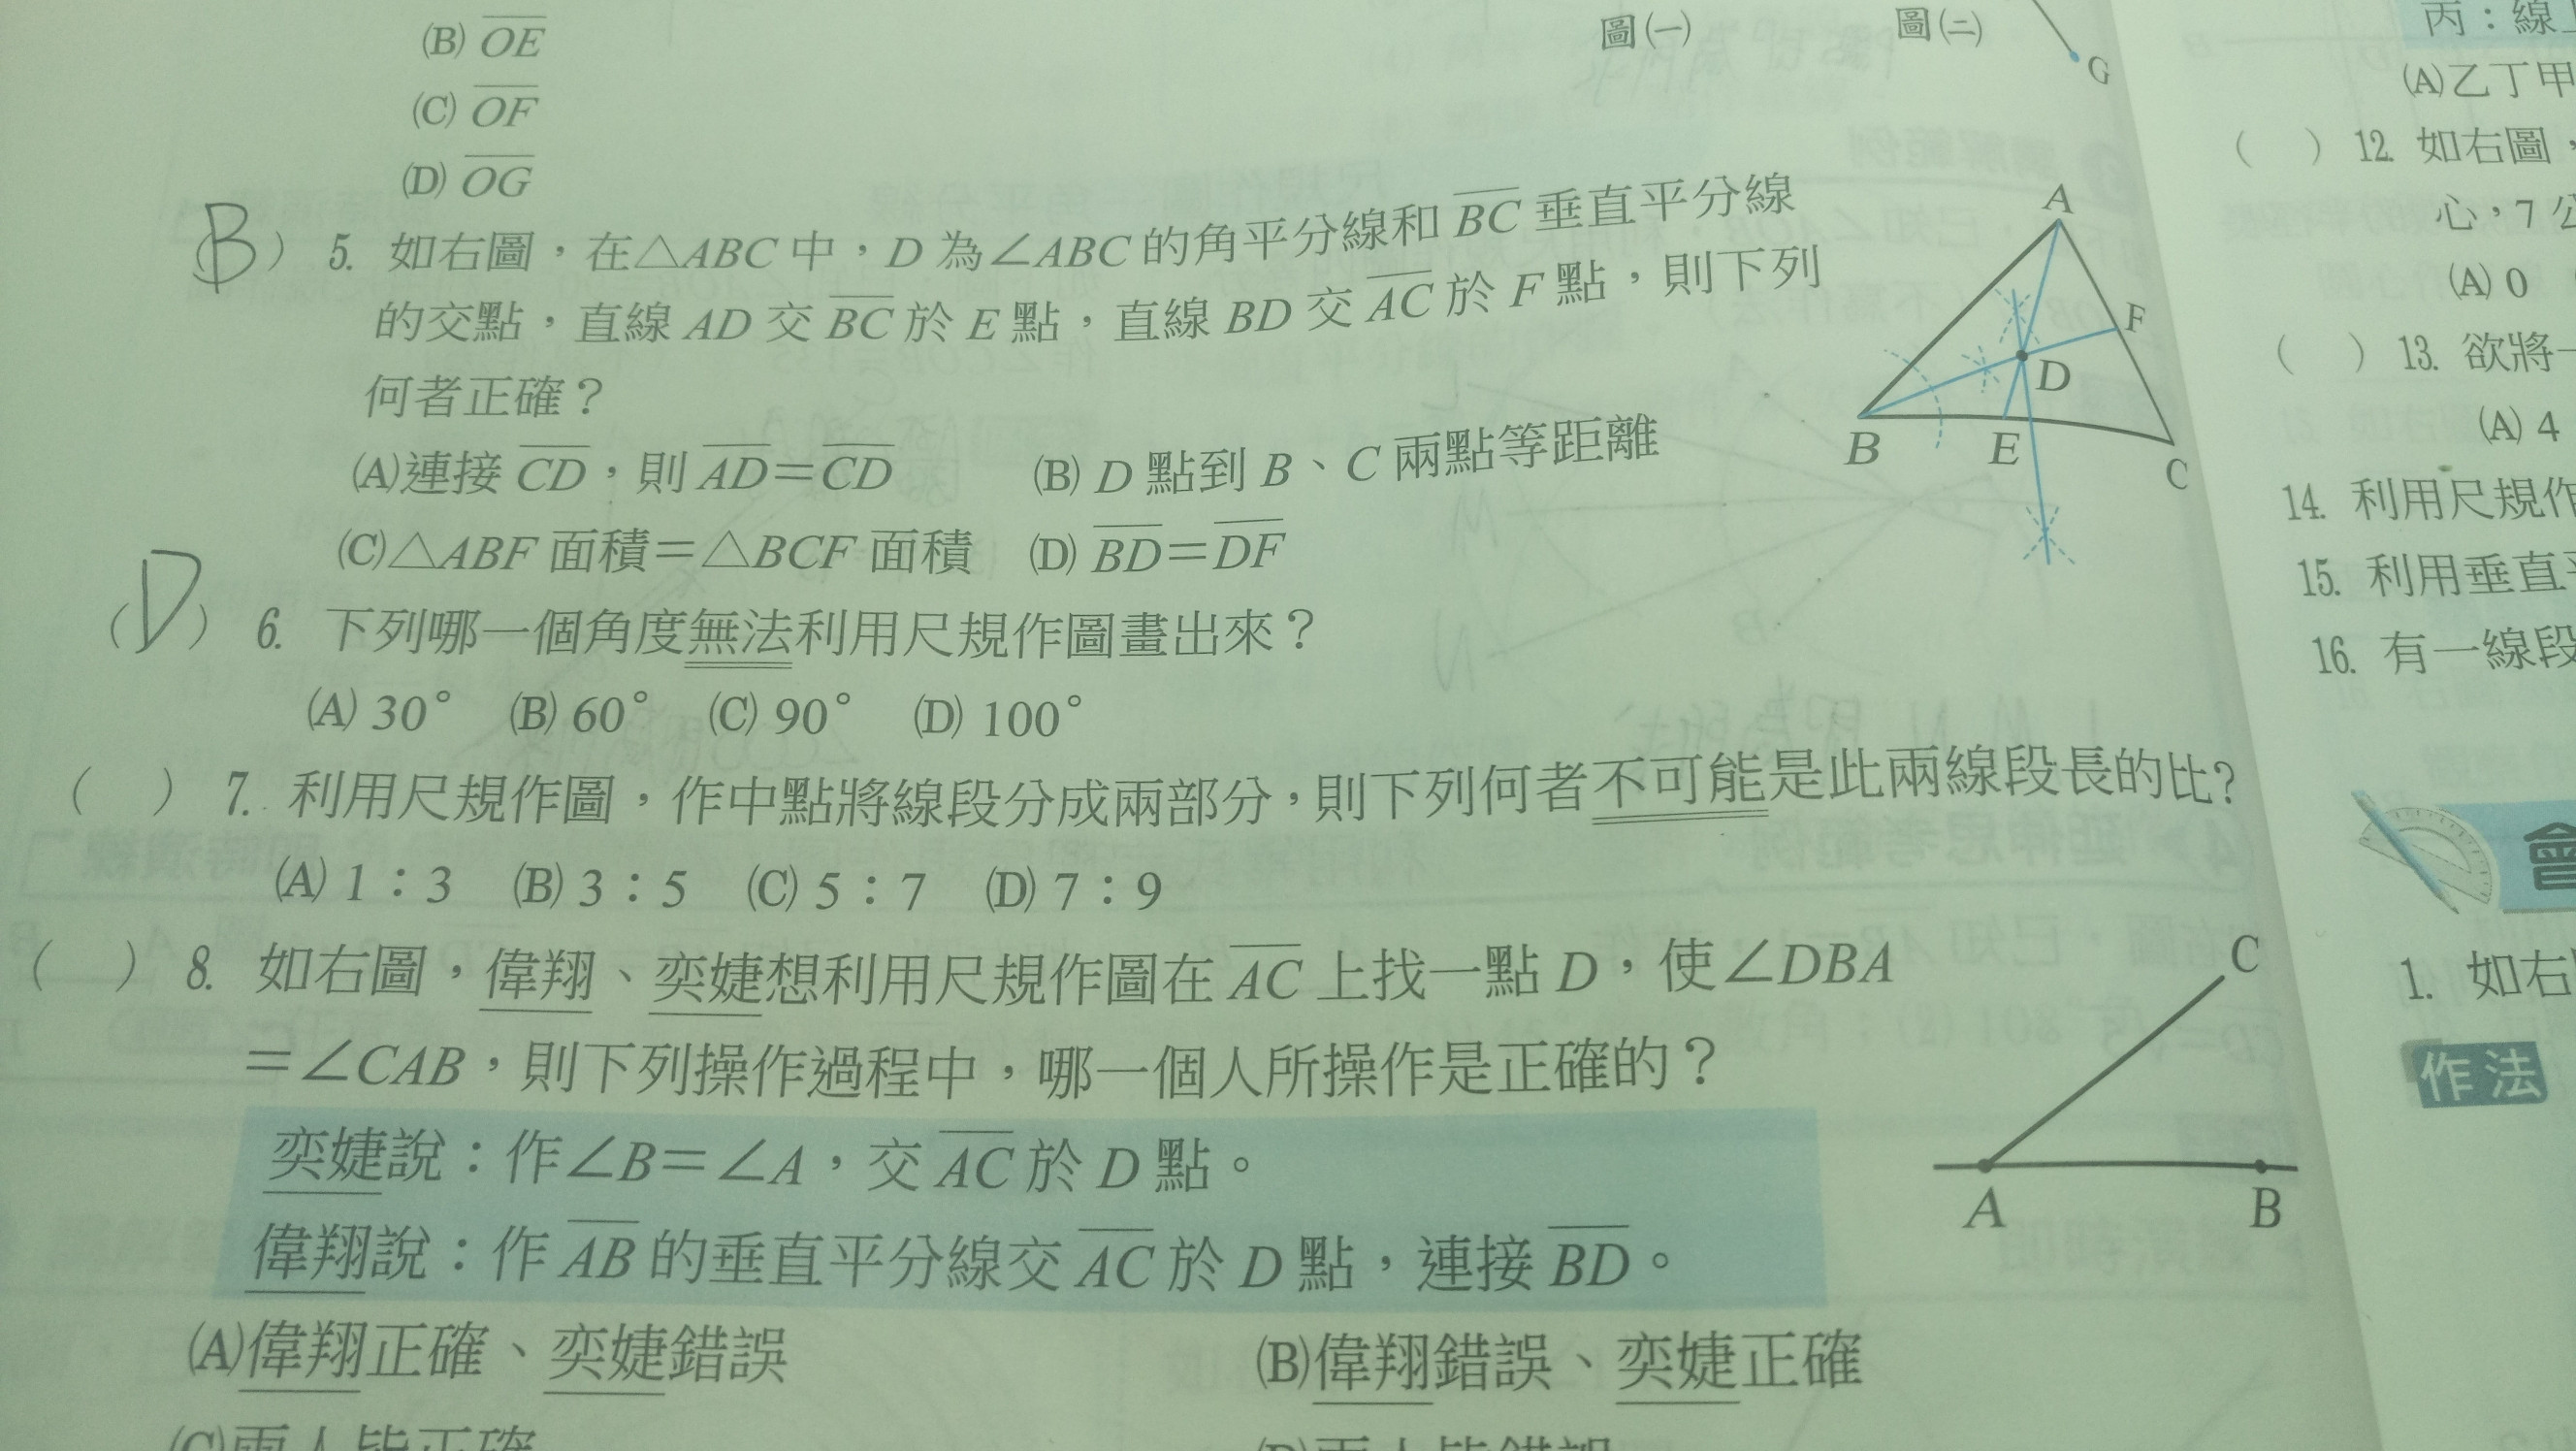 (B) OE
(C) OF
(D) OG
圖(一)
圖(二)
G
(B) 5. 如右圖,在△ABC 中,D 為∠ABC 的角平分線和 BC 垂直平分線
的交點,直線 AD 交 BC 於 E 點,直線 BD 交 AC 於 F 點,則下列
何者正確?
(A)連接 CD,則 AD=CD (B) D 點到 B、C 兩點等距離
(C)△ABF 面積=△BCF 面積 (D) BD=DF
A
F
D
B
E
C
(D) 6. 下列哪一個角度無法利用尺規作圖畫出來?
(A) 30° (B) 60° (C) 90° (D) 100°
( ) 7. 利用尺規作圖,作中點將線段分成兩部分,則下列何者不可能是此兩線段長的比?
(A) 1:3 (B) 3:5 (C) 5:7 (D) 7:9
( ) 8. 如右圖,偉翔、奕婕想利用尺規作圖在 AC 上找一點 D,使∠DBA
=∠CAB,則下列操作過程中,哪一個人所操作是正確的?
奕婕說:作∠B=∠A,交 AC 於 D 點。
偉翔說:作 AB 的垂直平分線交 AC 於 D 點,連接 BD。
(A)偉翔正確、奕婕錯誤 (B)偉翔錯誤、奕婕正確
(C)兩人皆正確 (D)兩人皆錯誤
C
A
B
丙:線上
(A)乙丁甲
( ) 12. 如右圖,
心,7 公
(A) 0
( ) 13. 欲將一
(A) 4
14. 利用尺規作
15. 利用垂直平
16. 有一線段
會
1. 如右圖
作法